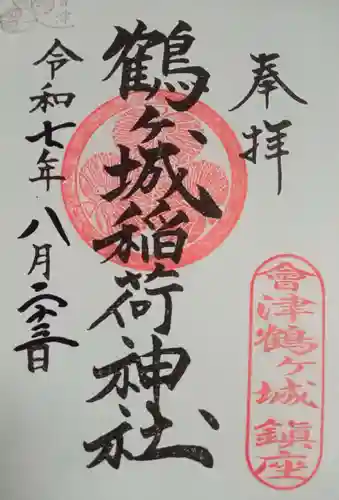 奉拝
鶴ヶ城稲荷神社
令和七年八月二十三日
會津鶴ヶ城鎮座